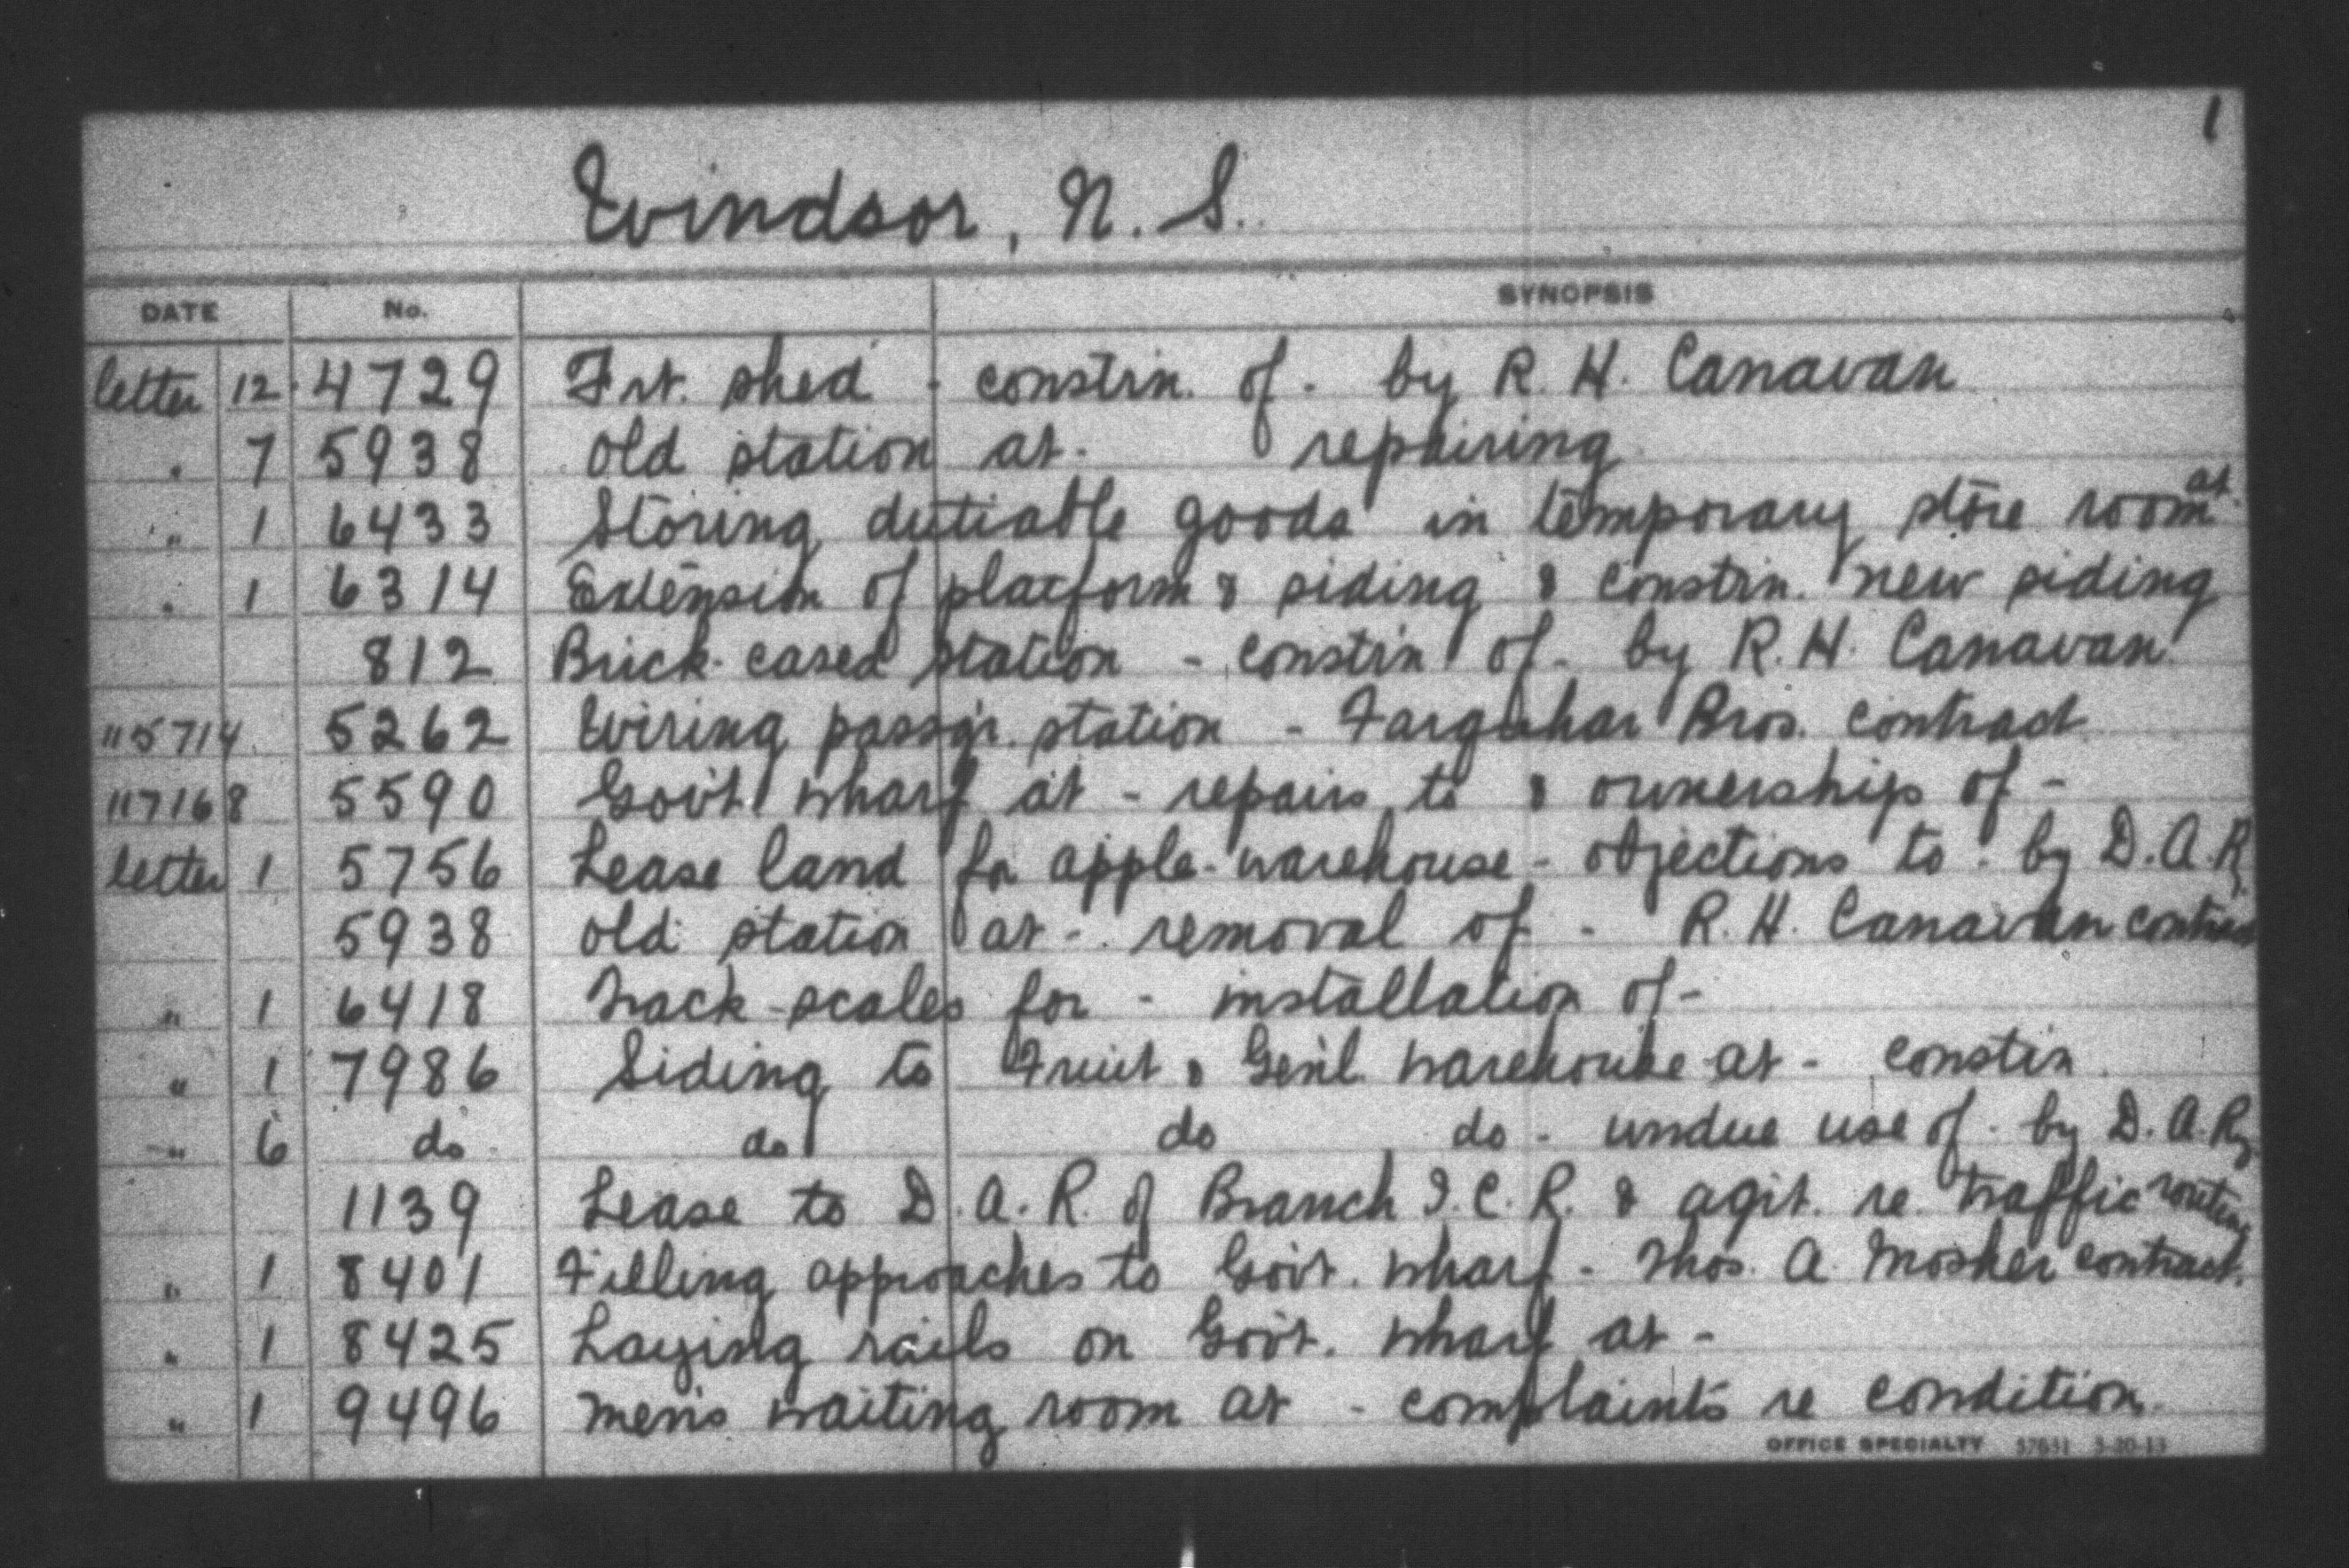 1
Windsor, N. S.
DATE No. SYNOPSIS
letter 12 4729 Frt. shed - constrn. of - by R. H. Canavan
" 7 5938 Old station at - repairing
" 1 6433 Storing dutiable goods in temporary store room at
" 1 6314 Extension of platform & siding & constrn. new siding
812 Brick-cased station - constrn of - by R. H. Canavan
" 5714 5262 Wiring passgr. station - Farquhar Bros. contract
" 7168 5590 Gov't wharf at - repairs to & ownership of -
letter 1 5756 Lease land for apple-warehouse - objections to - by D.A.Ry.
5938 Old station at - removal of - R. H. Canavan contract
" 1 6418 Track-scales for - installation of -
" 1 7986 Siding to Fruit & Gen'l warehouse at - constrn
" 6 do do do do - undue use of - by D.A.Ry.
1139 Lease to D.A.R. of Branch I.C.R. & agit. re traffic routing
" 1 8401 Filling approaches to Gov't. wharf - Thos. A. Mosher contract.
" 1 8425 Laying rails on Gov't. wharf at -
" 1 9496 Men's waiting room at - complaints re condition.
OFFICE SPECIALTY 57631 5-20-13